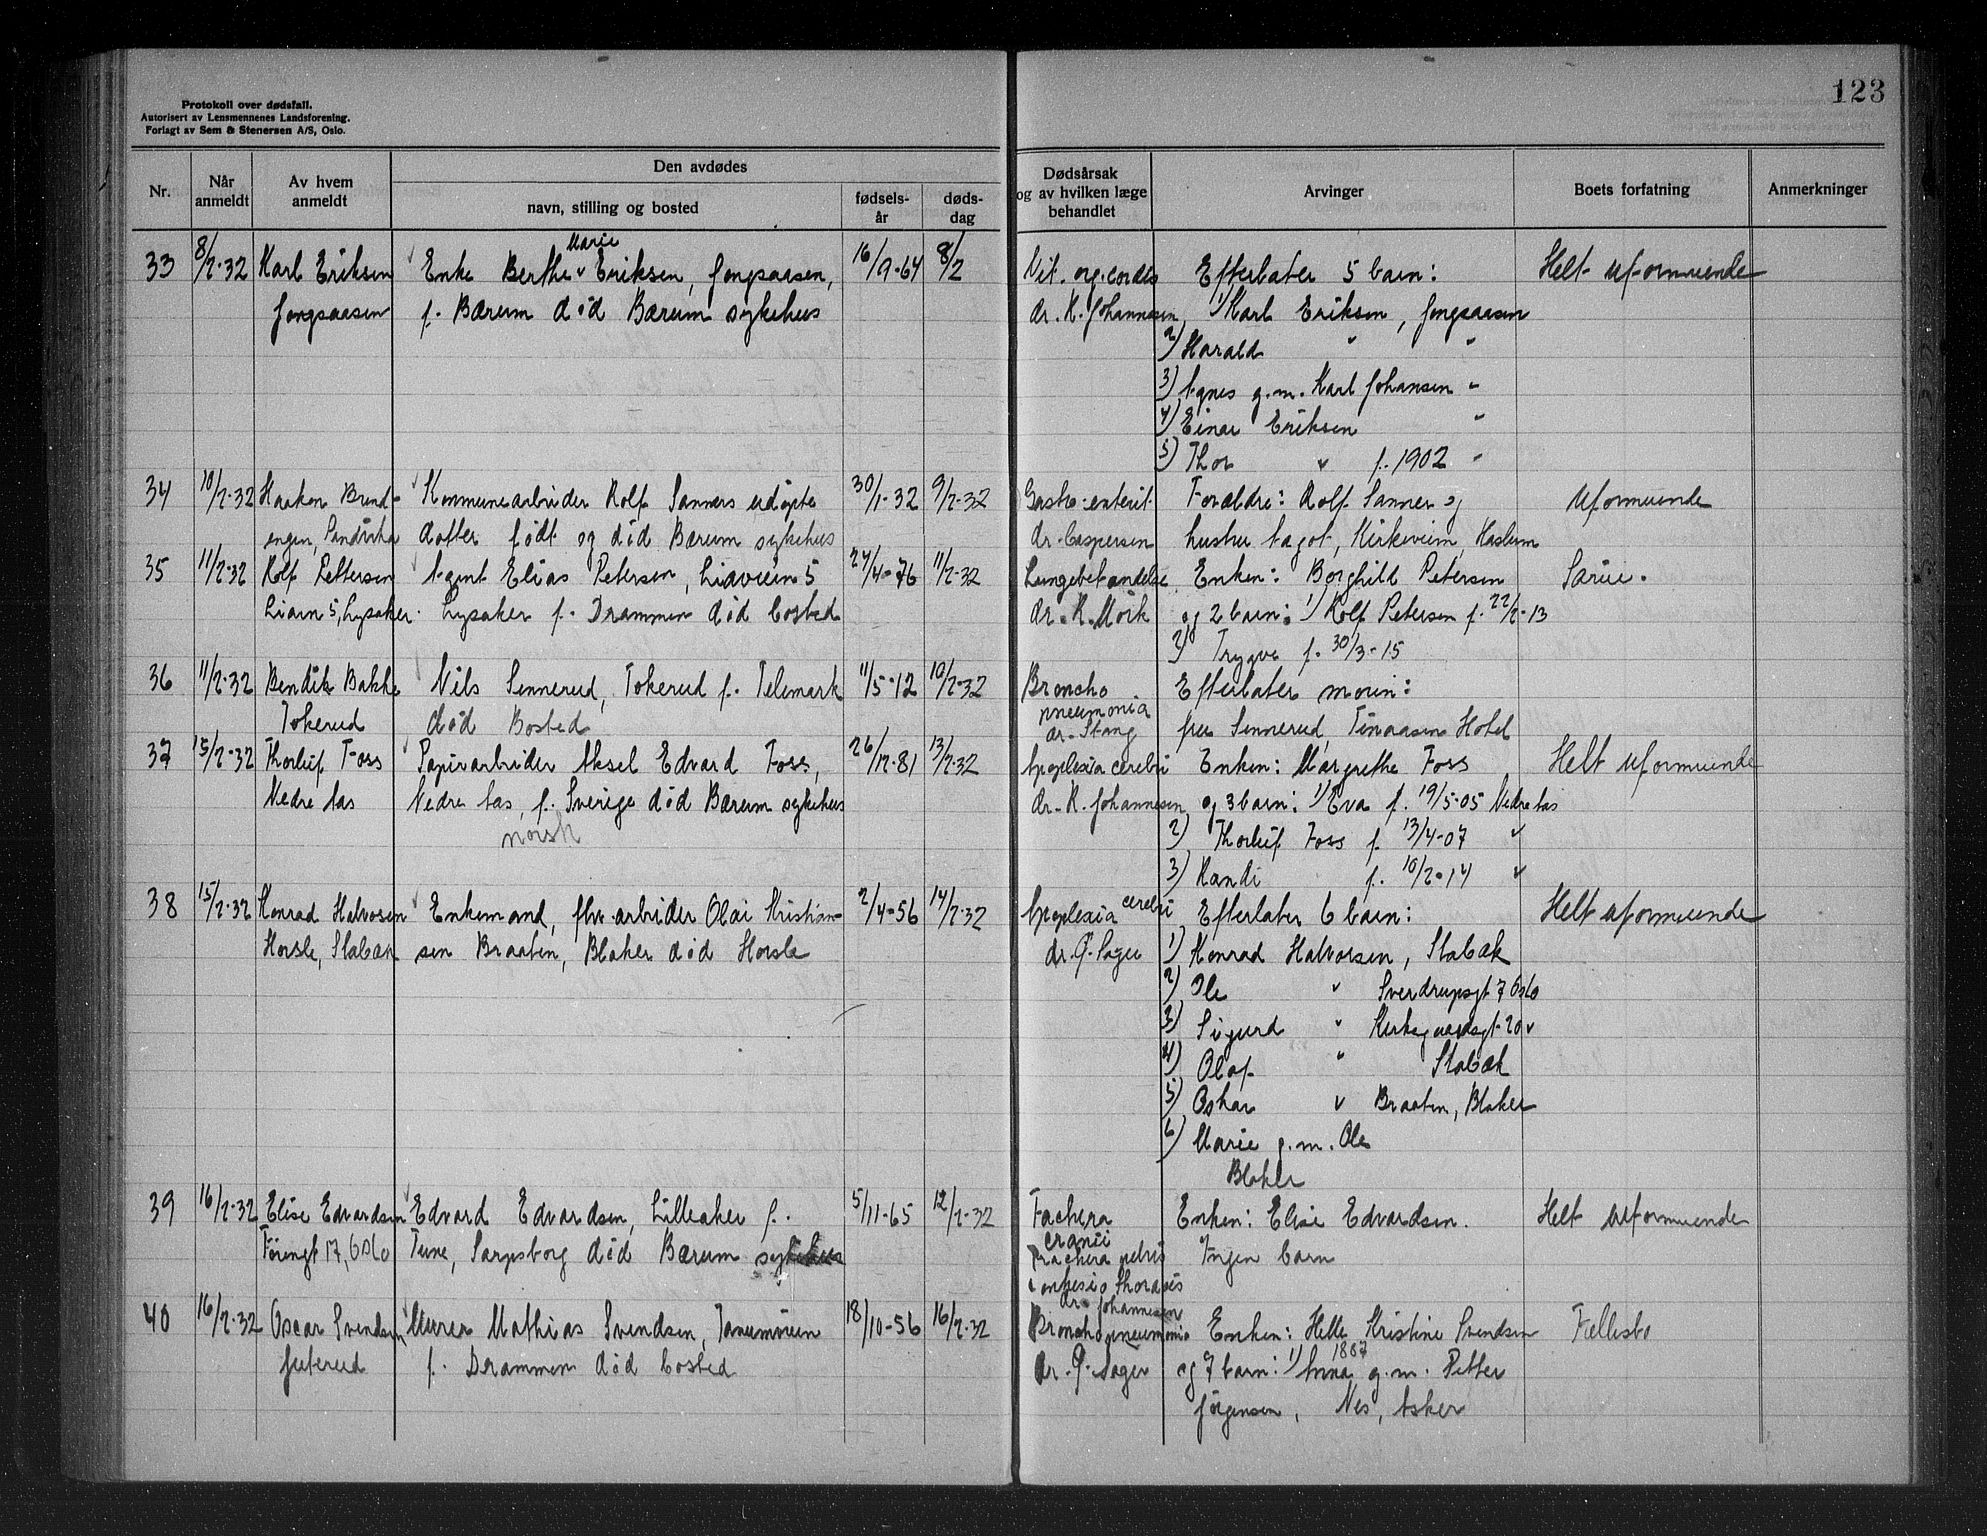 Protokoll over dødsfall.
Autorisert av Lensmennenes Landsforening.
Forlagt av Sem & Stenersen A/S, Oslo.
123
Nr. Når anmeldt Av hvem anmeldt Den avdødes
navn, stilling og bosted fødselsår dødsdag
Dødsårsak og av hvilken læge behandlet Arvinger Boets forfatning Anmerkninger
33 8/2-32 Karl Eriksen Enke Berthe Marie Eriksen, Jongsaasen, 16/9-64 8/2 Vit. org. cordis Efterlater 5 barn: Helt uformuende
Jongsaasen f. Bærum død Bærum sykehus dr. K. Johannesen 1) Karl Eriksen, Jongsaasen
2) Harald " "
3) Agnes g.m. Karl Johansen "
4) Einar Eriksen "
5) Thor " f. 1902 "
34 10/2-32 Haakon Brend- Kommunearbeider Rolf Sanners udøpte 30/1-32 9/2-32 Gastro-enterit. Forældre: Rolf Sanner og Uformuende
engen, Sandvika datter født og død Bærum sykehus dr. Caspersen hustru Aagot, Kirkeveien, Haslum
35 11/2-32 Rolf Pettersen Agent Elias Petersen, Liaveien 5 24/4-76 11/2-32 Lungebetændelse Enken: Borghild Petersen Særeie.
Liavn 5, Lysaker. Lysaker f. Drammen død bosted dr. K. Mørk og 2 barn: 1) Rolf Petersen f. 22/2-13
2) Trygve f. 30/3-15
36 11/2-32 Bendik Bakke Nils Sennerud, Tokerud f. Telemark 11/5-12 10/2-32 Broncho Efterlater moren:
Tokerud død Bosted pneumonia fru Sennerud, Tinaasen Hotel
dr. Stang
37 15/2-32 Thorleif Foss Papirarbeider Aksel Edvard Foss, 26/12-81 13/2-32 Apoplexia cerebri Enken: Margrethe Foss Helt uformuende
Nedre Aas Nedre Aas, f. Sverige død Bærum sykehus dr. K. Johannesen og 3 barn: 1) Eva f. 19/5-05 Nedre Aas
norsk 2) Thorleif Foss f. 13/4-07 "
3) Randi f. 10/2-14 "
38 15/2-32 Konrad Halvosen Enkemand, fhv. arbeider Olai Kristian- 2/4-56 14/2-32 Apoplexia cerebri Efterlater 6 barn: Helt uformuende
Horsle, Stabæk sen Braaten, Blaker død Horsle dr. Q. Sager 1) Konrad Halvorsen, Stabæk
2) Ole " Sverdrupsgt 7 Oslo
3) Sigurd " Kirkegaardsgt. 20 "
4) Olaf " Stabæk
5) Oskar " Braaten, Blaker
6) Marie g.m. Ole
Blaker
39 16/2-32 Elise Edvardsen Edvard Edvardsen, Lilleaker f. 5/11-65 12/2-32 Enken: Elise Edvardsen. Helt uformuende
17, Oslo Tune, Sarpsborg død Bærum sykehus cranii Ingen barn
dr. Johannesen
40 16/2-32 Oscar Svendsen Murer Mathias Svendsen, Tanumveien 18/10-56 16/2-32 Bronchopneumonia Enken: Helle Kristine Svendsen Fellesbo
Juterud f. Drammen død bosted dr. Q. Sager og 7 barn: 1) Anna 1887 g.m. Petter
Jørgensen, Nes, Asker